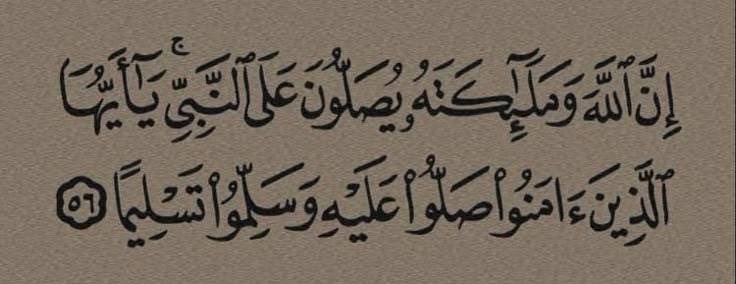 إِنَّ ٱللَّهَ وَمَلَٰٓئِكَتَهُۥ يُصَلُّونَ عَلَى ٱلنَّبِيِّۚ يَٰٓأَيُّهَا
ٱلَّذِينَ ءَامَنُوا۟ صَلُّوا۟ عَلَيْهِ وَسَلِّمُوا۟ تَسْلِيمًا ٥٦